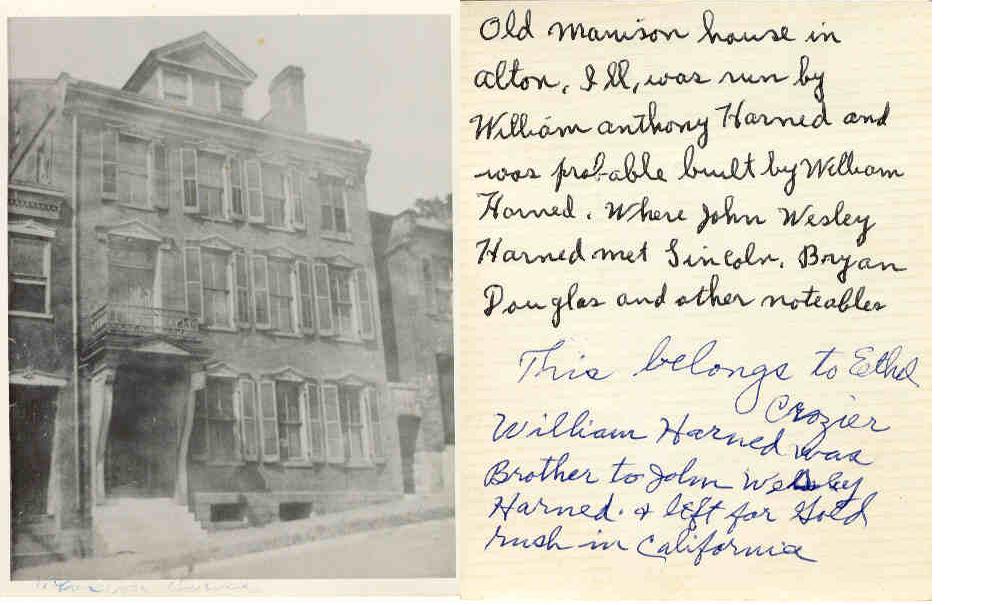 Old Manison house in
alton, Ill, was run by
William anthony Harned and
was probable built by William
Harned. Where John Wesley
Harned met Lincoln. Bryan
Douglas and other noteables
This belongs to Ethel
Crozier
William Harned was
Brother to John Wesley
Harned. & left for Gold
rush in California